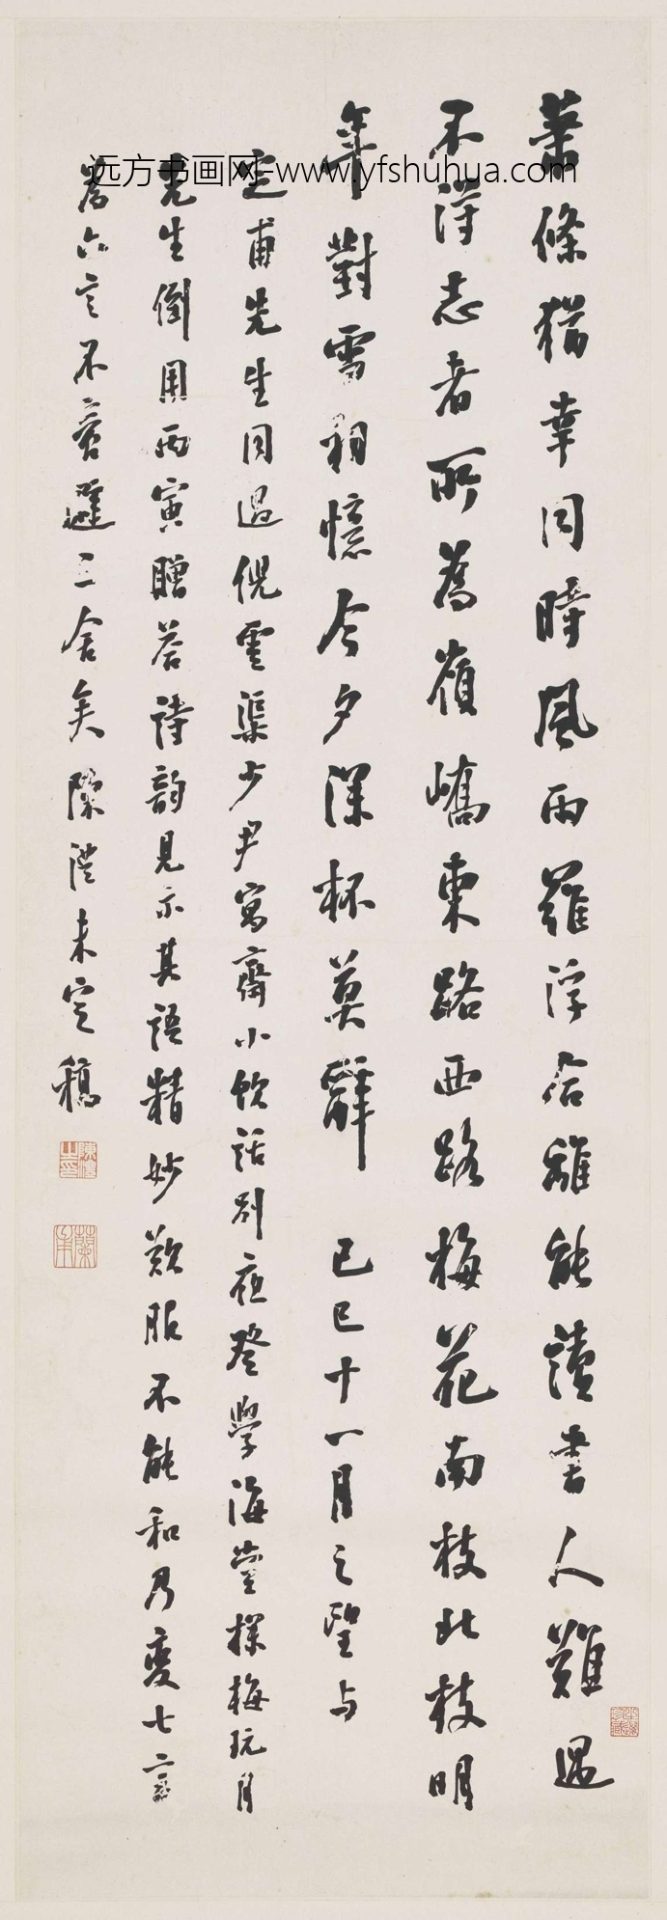 蕭條猶幸同時風雨羅浮合離能讀書人難遇
不得志者所為嶺嶠東路西路梅花南枝北枝明
年對雪相憶今夕深杯莫辭 己巳十一月之望与
定甫先生同過倪雲渠少尹寓齋小飲話別夜登學海堂探梅玩月
先生倒用丙寅贈答詩韵見示其語精妙歎服不能和乃變七言
為六言不啻避三舍矣陳澧未定稿
远方书画网-www.yfshuhua.com
陳澧之印
蘭甫